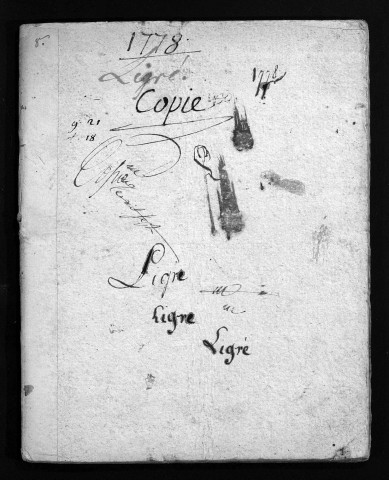 8.
1778
Ligré
1778
Copie
9 21
18
Copie
Ligre
Ligre
Ligré